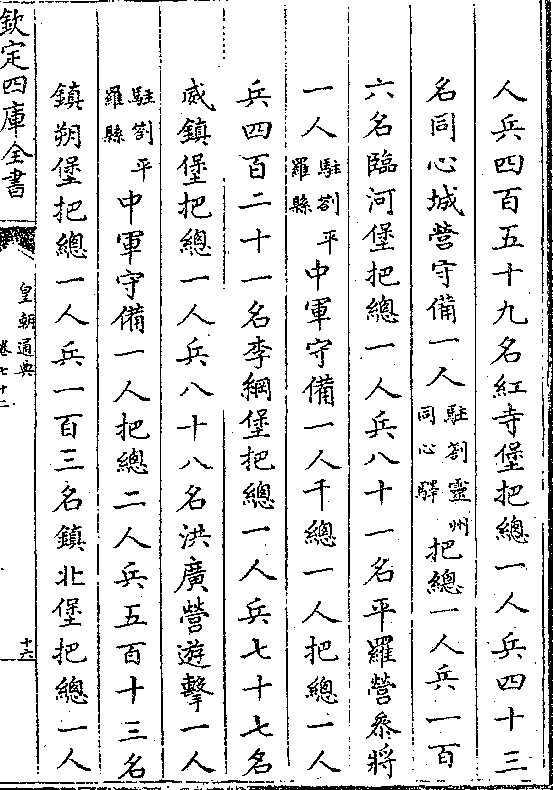 人兵四百五十九名紅寺堡把總一人兵四十三
名同心城營守備一人駐劄靈州同心驛把總一人兵一百
六名臨河堡把總一人兵八十一名平羅營叅將
一人駐劄平羅縣中軍守備一人千總一人把總一人
兵四百二十一名李綱堡把總一人兵七十七名
威鎮堡把總一人兵八十八名洪廣營遊擊一人
駐劄平羅縣中軍守備一人把總二人兵五百十三名
鎮朔堡把總一人兵一百三名鎮北堡把總一人
欽定四庫全書
皇朝通典
卷七十二
十六